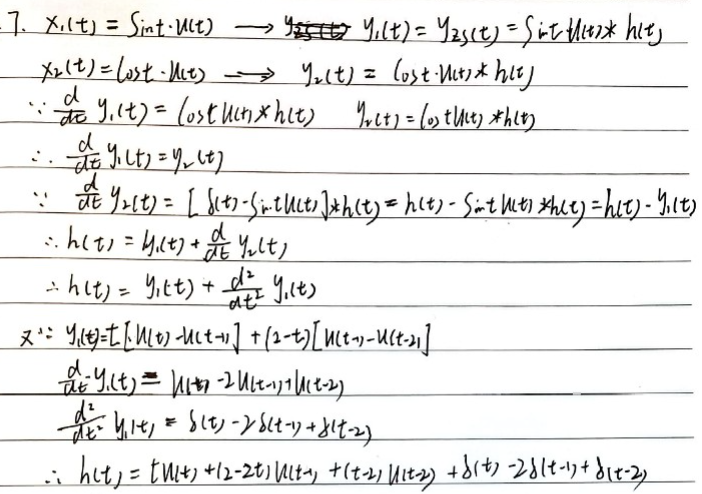 7. x₁(t) = Sint·u(t) → y₁(t) = y₂ₛ(t) = Sint u(t) * h(t)
x₂(t) = Cost·u(t) → y₂(t) = Cost·u(t) * h(t)
∵ d/dt y₁(t) = Cost u(t) * h(t) y₂(t) = Cost u(t) * h(t)
∴ d/dt y₁(t) = y₂(t)
∵ d/dt y₂(t) = [δ(t) - Sint u(t)] * h(t) = h(t) - Sint u(t) * h(t) = h(t) - y₁(t)
∴ h(t) = y₁(t) + d/dt y₂(t)
∴ h(t) = y₁(t) + d²/dt² y₁(t)
又∵ y₁(t) = t[u(t) - u(t-1)] + (2-t)[u(t-1) - u(t-2)]
d/dt y₁(t) = u(t) - 2u(t-1) + u(t-2)
d²/dt² y₁(t) = δ(t) - 2δ(t-1) + δ(t-2)
∴ h(t) = tu(t) + (2-2t)u(t-1) + (t-2)u(t-2) + δ(t) - 2δ(t-1) + δ(t-2)